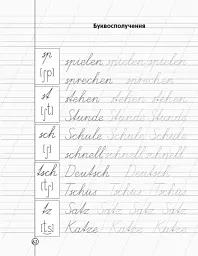 Буквосполучення
sp
[ʃp]
spielen spielen spielen
sprechen sprechen
st
[ʃt]
stehen stehen stehen
Stunde Stunde Stunde
sch
[ʃ]
Schule Schule Schule
schnell schnell schnell
tsch
[tʃ]
Deutsch Deutsch
Tschüs Tschüs Tschüs
tz
[ts]
Satz Satz Satz Satz
Katze Katze Katze